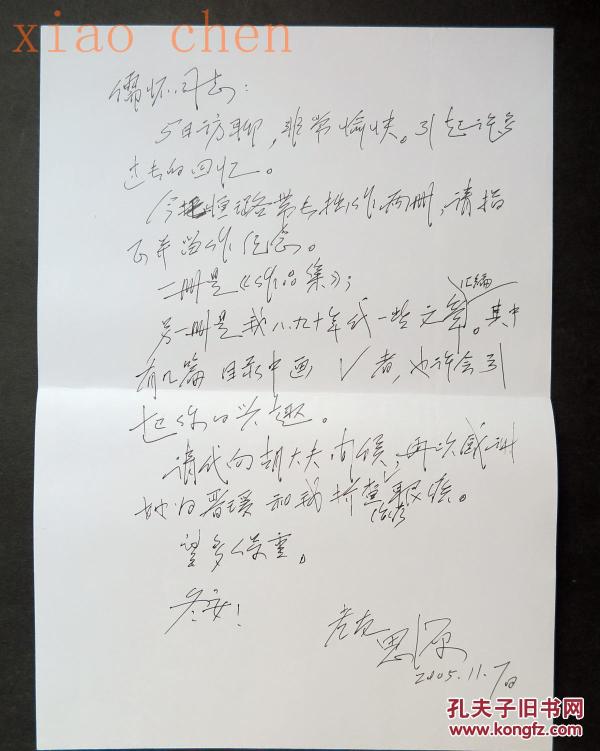 xiao chen
儒怀同志：
5日访聊，非常愉快。引起许多
过去的回忆。
今把 带上拙作两册，请指
正并当作纪念。
一册是《作品集》；
另一册是我八、九十年代一些文章汇编。其中
有几篇目录中画√者，也许会引
起你的兴趣。
请代向胡大夫问候，再次感谢
她为 和我 。
望多保重。
冬安！
老友 思源
2005.11.7日
孔夫子旧书网
www.kongfz.com